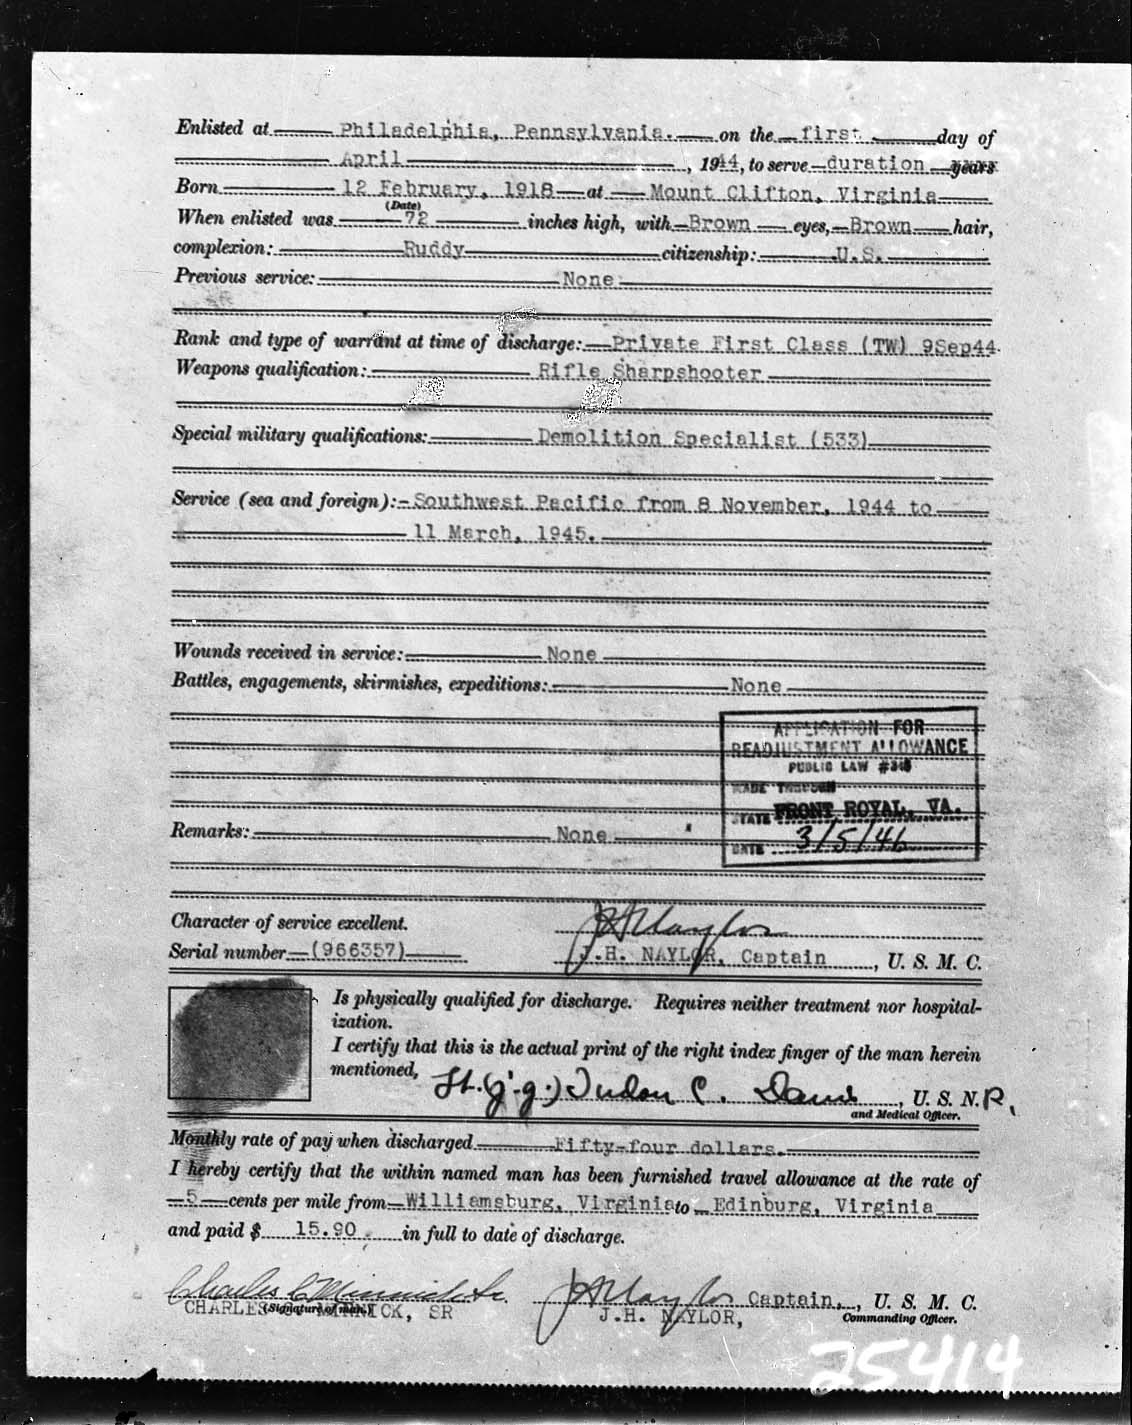 Enlisted at Philadelphia, Pennsylvania. on the first day of
April, 1944, to serve duration years
Born 12 February, 1918 at Mount Clifton, Virginia
(Date)
When enlisted was 72 inches high, with Brown eyes, Brown hair,
complexion: Ruddy citizenship: U.S.
Previous service: None
Rank and type of warrant at time of discharge: Private First Class (TW) 9Sep44.
Weapons qualification: Rifle Sharpshooter
Special military qualifications: Demolition Specialist (533)
Service (sea and foreign): Southwest Pacific from 8 November, 1944 to
11 March, 1945.
Wounds received in service: None
Battles, engagements, skirmishes, expeditions: None
APPLICATION FOR
READJUSTMENT ALLOWANCE
PUBLIC LAW #346
MADE THROUGH
STATE FRONT ROYAL, VA.
Remarks: None
DATE 3/5/46
Character of service excellent.
J H Naylor
Serial number (966357)
J.H. NAYLOR, Captain, U. S. M. C.
Is physically qualified for discharge. Requires neither treatment nor hospital-
ization.
I certify that this is the actual print of the right index finger of the man herein
mentioned, Lt. (j.g.) C. Davis, U. S. N.R.
and Medical Officer.
Monthly rate of pay when discharged Fifty-four dollars.
I hereby certify that the within named man has been furnished travel allowance at the rate of
5 cents per mile from Williamsburg, Virginia to Edinburg, Virginia
and paid $ 15.90 in full to date of discharge.
Charles C Minnick Sr. J H Naylor Captain, U. S. M. C.
CHARLES MINNICK, SR (Signature of man) J.H. NAYLOR, Commanding Officer.
25414